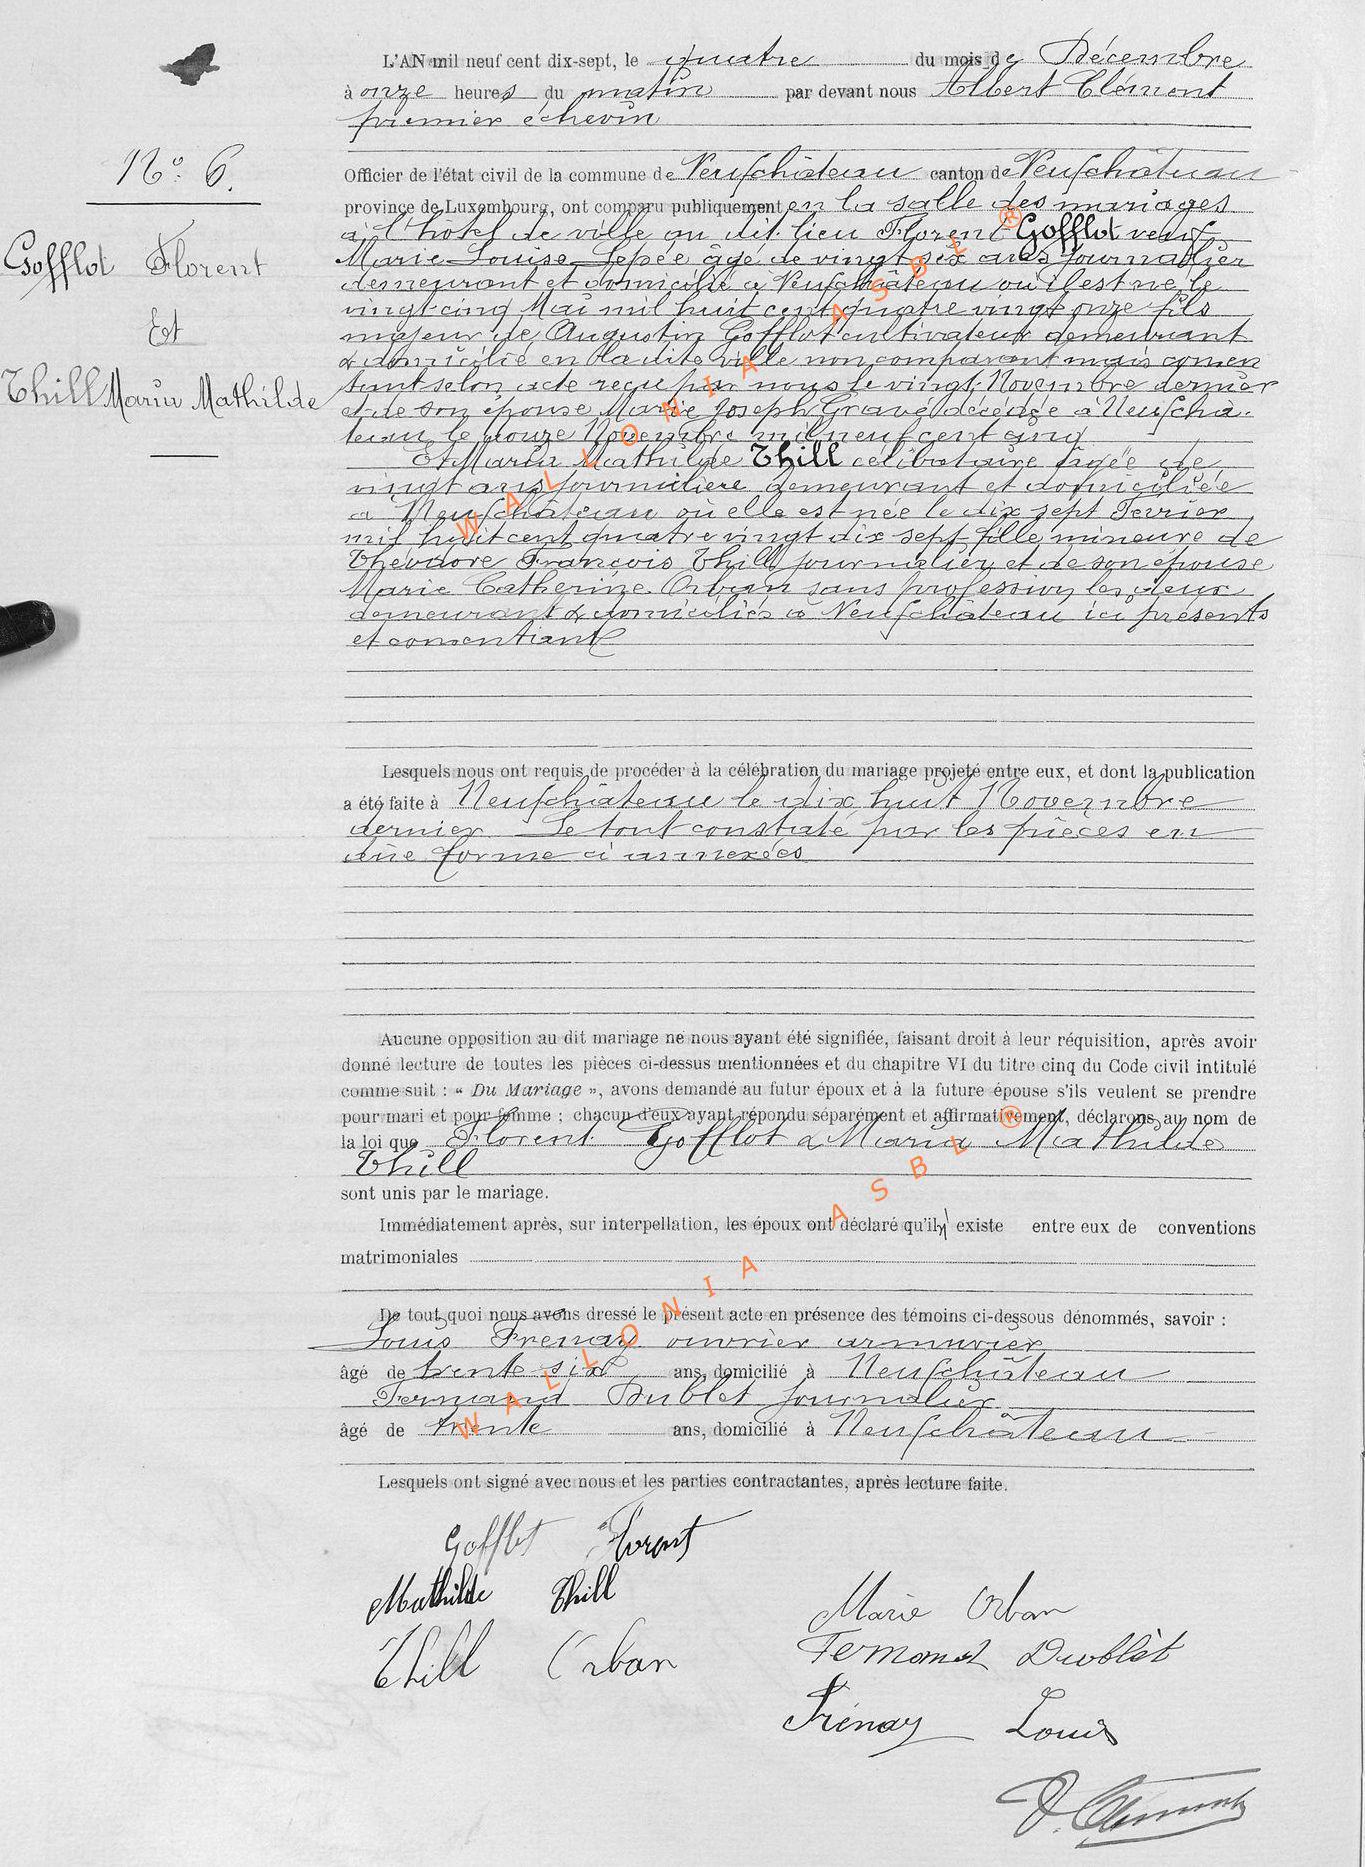 L'AN mil neuf cent dix-sept, le quatre du mois de Décembre
à onze heures du matin par devant nous Albert Clément
premier échevin
N° 6.
Officier de l'état civil de la commune de Neufchâteau canton de Neufchâteau
province de Luxembourg, ont comparu publiquement en la salle des mariages
à l'hotel de ville au dit lieu Florent Gofflot veuf
Gofflot Florent
Marie Louise Lepée âgé de vingt six ans journalier
demeurant et domicilié à Neufchâteau où il est né le
vingt cinq Mai mil huit cent quatre vingt onze fils
Et
majeur de Augustin Gofflot cultivateur demeurant
& domicilié en la dite ville non comparant mais consen
Thill Maria Mathilde
tant selon acte reçu par nous le vingt Novembre dernier
et de son épouse Marie Joseph Gravé décédée à Neufchâ-
teau le douze Novembre mil neuf cent cinq
Et Maria Mathilde Thill célibataire âgée de
vingt ans journalière demeurant et domiciliée
à Neufchâteau où elle est née le dix sept Février
mil huit cent quatre vingt dix sept fille mineure de
Théodore François Thill journalier et de son épouse
Marie Catherine Orban sans profession les deux
demeurant & domiciliés à Neufchâteau ici présents
et consentiant
Lesquels nous ont requis de procéder à la célébration du mariage projeté entre eux, et dont la publication
a été faite à Neufchâteau le dix huit Novembre
dernier Le tout constaté par les pièces en
dûe forme ci annexées
Aucune opposition au dit mariage ne nous ayant été signifiée, faisant droit à leur réquisition, après avoir
donné lecture de toutes les pièces ci-dessus mentionnées et du chapitre VI du titre cinq du Code civil intitulé
comme suit : « Du Mariage », avons demandé au futur époux et à la future épouse s'ils veulent se prendre
pour mari et pour femme ; chacun d'eux ayant répondu séparément et affirmativement, déclarons au nom de
la loi que Florent Gofflot & Maria Mathilde
Thill
sont unis par le mariage.
Immédiatement après, sur interpellation, les époux ont déclaré qu'il existe entre eux de conventions
matrimoniales
De tout quoi nous avons dressé le présent acte en présence des témoins ci-dessous dénommés, savoir :
Louis Frénay ouvrier armurier
âgé de trente six ans, domicilié à Neufchâteau
Fernand Dublet journalier
âgé de trente ans, domicilié à Neufchâteau
Lesquels ont signé avec nous et les parties contractantes, après lecture faite.
Gofflot Florent
Mathilde Thill
Marie Orban
Thill Orban
Fernand Dublet
Frénay Louis
Clément
WALLONIA ASBL ®
WALLONIA ASBL ®